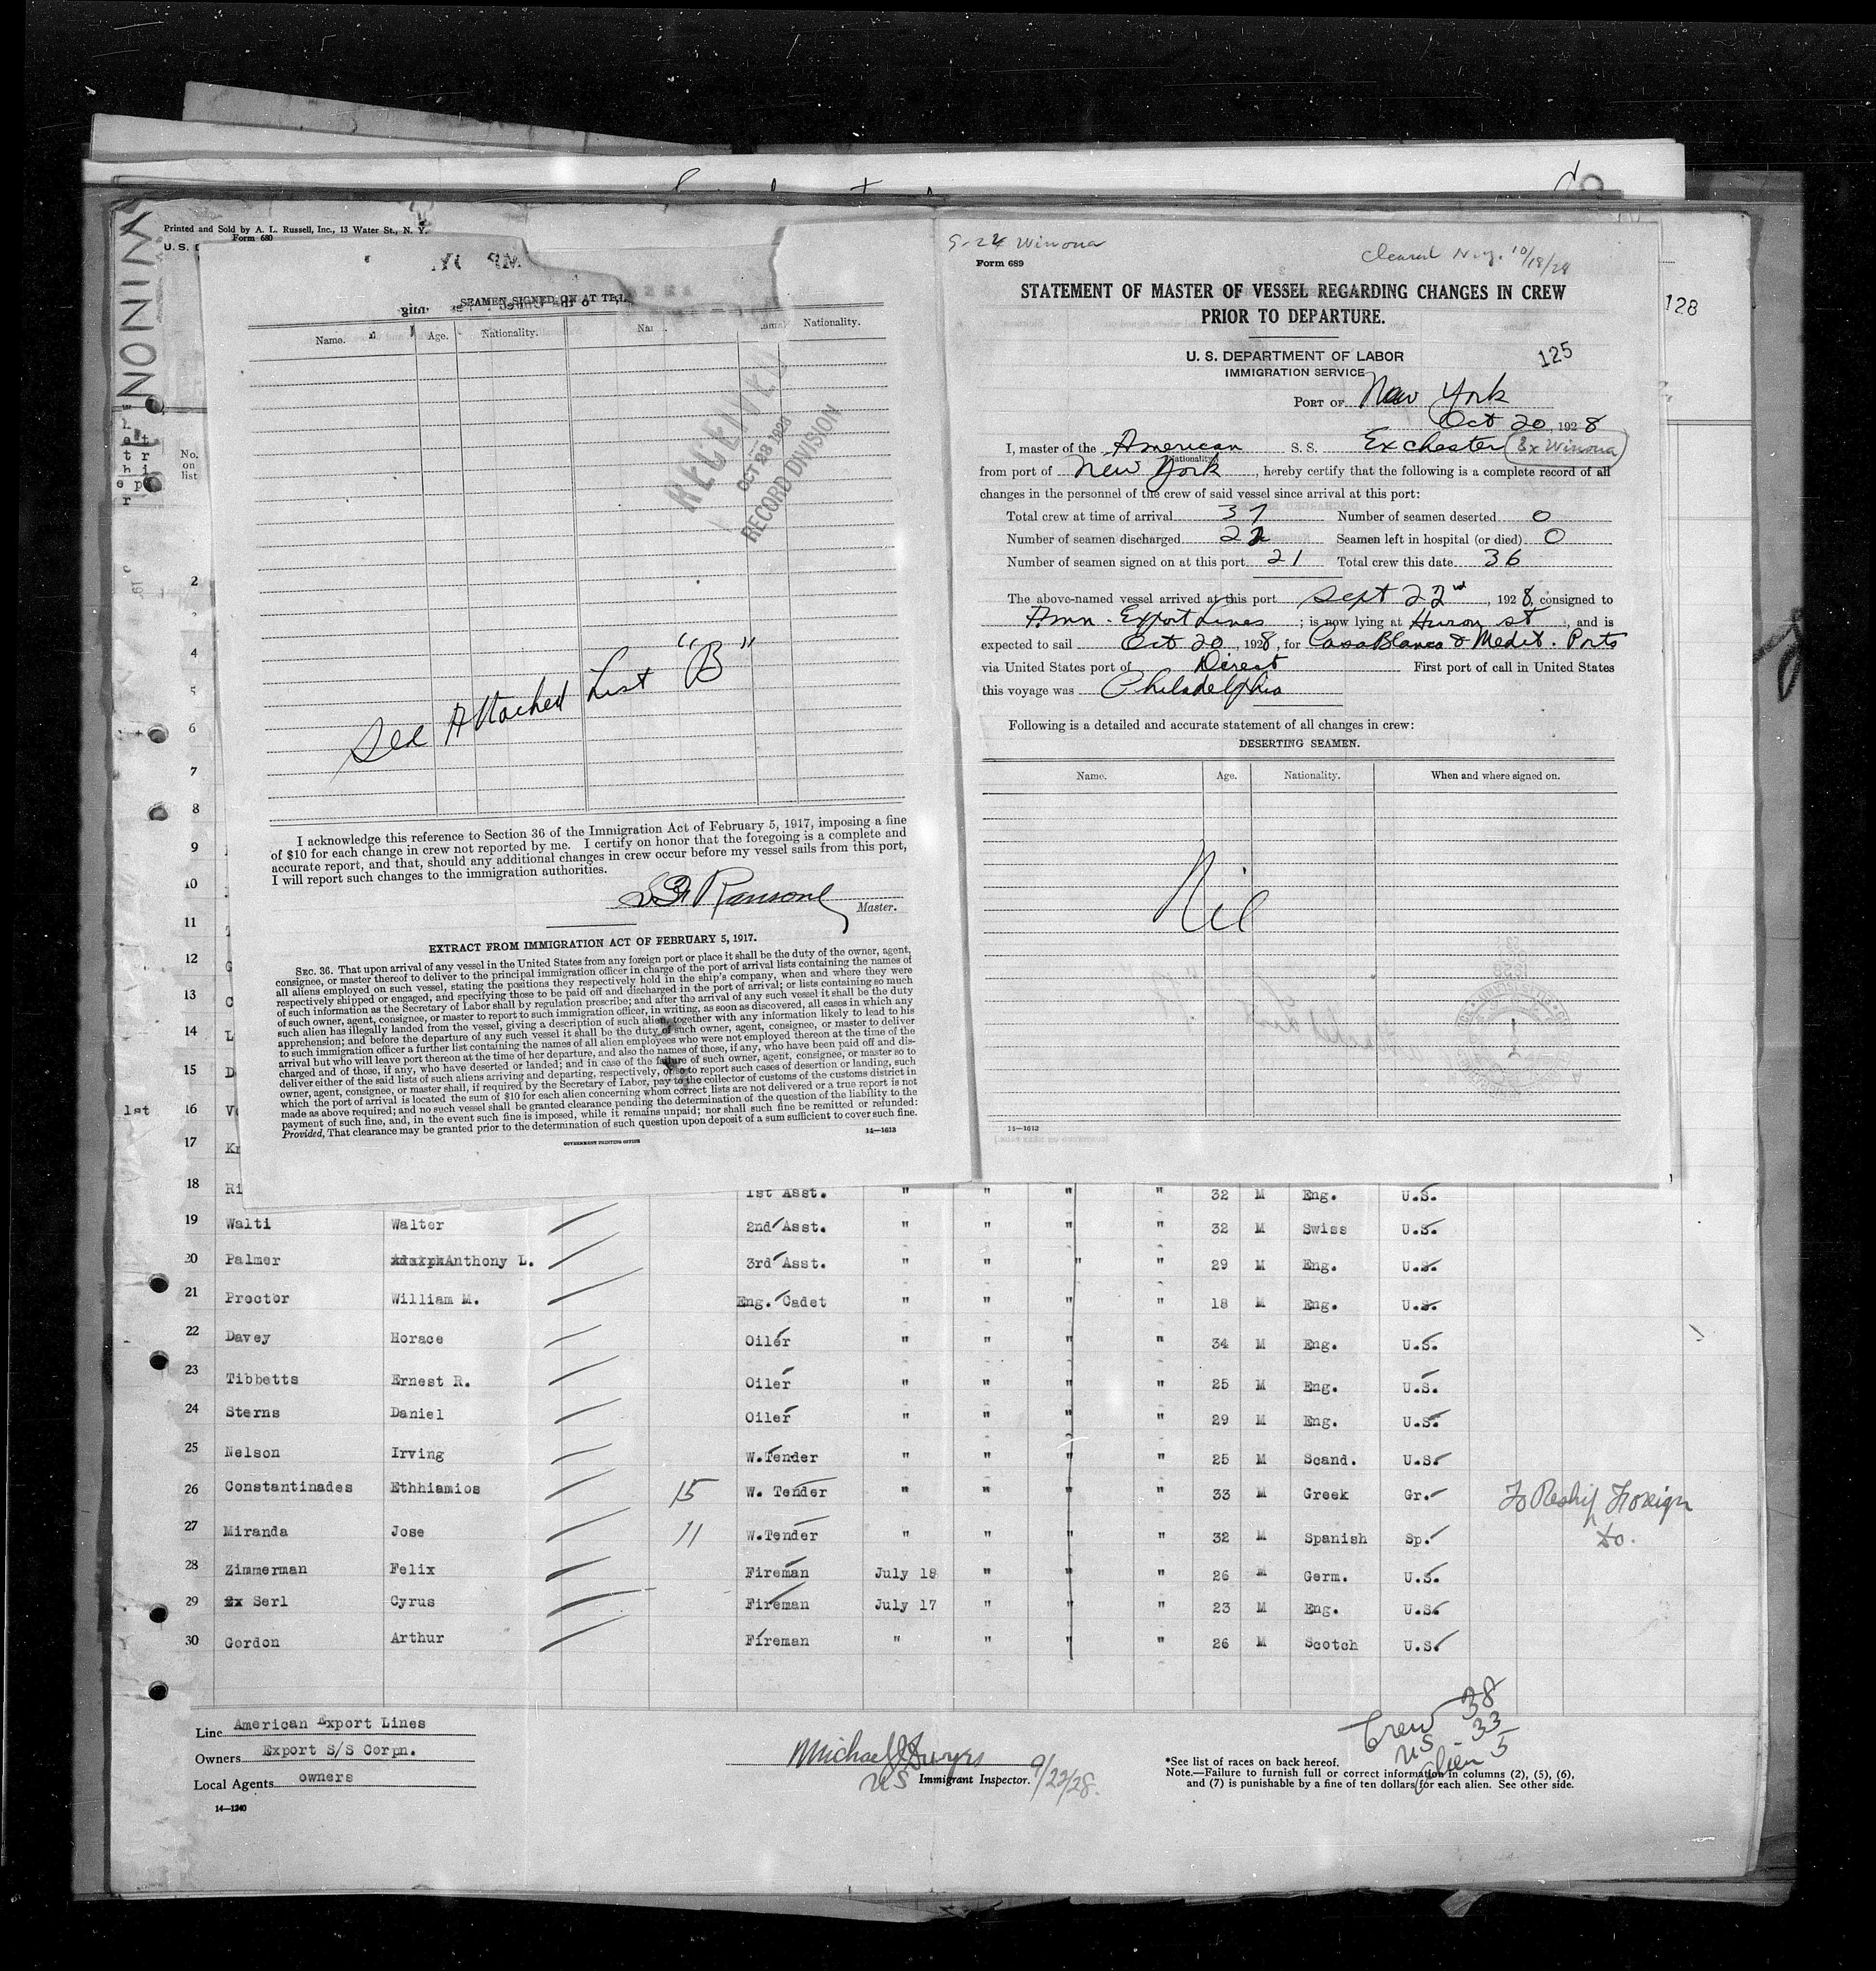 WINONA
Printed and Sold by A. L. Russell, Inc., 13 Water St., N. Y.
Form 680
U. S.
No. on list
SEAMEN SIGNED ON AT
Name. Age. Nationality. Nationality.
RECEIVED
OCT 23 1928
RECORD DIVISION
See Attached List "B"
I acknowledge this reference to Section 36 of the Immigration Act of February 5, 1917, imposing a fine
of $10 for each change in crew not reported by me. I certify on honor that the foregoing is a complete and
accurate report, and that, should any additional changes in crew occur before my vessel sails from this port,
I will report such changes to the immigration authorities.
Ransone
Master.
EXTRACT FROM IMMIGRATION ACT OF FEBRUARY 5, 1917.
SEC. 36. That upon arrival of any vessel in the United States from any foreign port or place it shall be the duty of the owner, agent,
consignee, or master thereof to deliver to the principal immigration officer in charge of the port of arrival lists containing the names of
all aliens employed on such vessel, stating the positions they respectively hold in the ship's company, when and where they were
respectively shipped or engaged, and specifying those to be paid off and discharged in the port of arrival; or lists containing so much
of such information as the Secretary of Labor shall by regulation prescribe; and after the arrival of any such vessel it shall be the duty
of such owner, agent, consignee, or master to report to such immigration officer, in writing, as soon as discovered, all cases in which any
such alien has illegally landed from the vessel, giving a description of such alien, together with any information likely to lead to his
apprehension; and before the departure of any such vessel it shall be the duty of such owner, agent, consignee, or master to deliver
to such immigration officer a further list containing the names of all alien employees who were not employed thereon at the time of the
arrival but who will leave port thereon at the time of her departure, and also the names of those, if any, who have been paid off and dis-
charged and of those, if any, who have deserted or landed; and in case of the failure of such owner, agent, consignee, or master so to
deliver either of the said lists of such aliens arriving and departing, respectively, or so to report such cases of desertion or landing, such
owner, agent, consignee, or master shall, if required by the Secretary of Labor, pay to the collector of customs of the customs district in
which the port of arrival is located the sum of $10 for each alien concerning whom correct lists are not delivered or a true report is not
made as above required; and no such vessel shall be granted clearance pending the determination of the question of the liability to the
payment of such fine, and, in the event such fine is imposed, while it remains unpaid; nor shall such fine be remitted or refunded:
Provided, That clearance may be granted prior to the determination of such question upon deposit of a sum sufficient to cover such fine.
GOVERNMENT PRINTING OFFICE 14—1613
9-22 Winona
Cleared N.Y. 10/18/28
Form 689
STATEMENT OF MASTER OF VESSEL REGARDING CHANGES IN CREW
PRIOR TO DEPARTURE.
128
U. S. DEPARTMENT OF LABOR
IMMIGRATION SERVICE
125
PORT OF New York
Oct 20, 1928
I, master of the American S. S. Exchester (Ex Winona)
(Nationality)
from port of New York, hereby certify that the following is a complete record of all
changes in the personnel of the crew of said vessel since arrival at this port:
Total crew at time of arrival 37 Number of seamen deserted 0
Number of seamen discharged 22 Seamen left in hospital (or died) 0
Number of seamen signed on at this port 21 Total crew this date 36
The above-named vessel arrived at this port Sept 22nd, 1928, consigned to
Amn. Export Lines; is now lying at Huron St, and is
expected to sail Oct 20, 1928, for CasaBlanca & Medit. Ports
via United States port of Direct First port of call in United States
this voyage was Philadelphia
Following is a detailed and accurate statement of all changes in crew:
DESERTING SEAMEN.
Name. Age. Nationality. When and where signed on.
Nil
14—1613
2
4
5
6
7
8
9
10
11
12 G
13 C
14 L
15 D
1st 16 Vo
17 Kr
18 Ri 1st Asst. " " " " 32 M Eng. U.S.
19 Walti Walter 2nd Asst. " " " " 32 M Swiss U.S.
20 Palmer Anthony L. 3rd Asst. " " " " 29 M Eng. U.S.
21 Proctor William M. Eng. Cadet " " " " 18 M Eng. U.S.
22 Davey Horace Oiler " " " " 34 M Eng. U.S.
23 Tibbetts Ernest R. Oiler " " " " 25 M Eng. U.S.
24 Sterns Daniel Oiler " " " " 29 M Eng. U.S.
25 Nelson Irving W.Tender " " " " 25 M Scand. U.S.
26 Constantinades Ethhiamios 15 W. Tender " " " " 33 M Greek Gr. To Reship Foreign
27 Miranda Jose 11 W.Tender " " " " 32 M Spanish Sp. Do.
28 Zimmerman Felix Fireman July 18 " " " 26 M Germ. U.S.
29 Serl Cyrus Fireman July 17 " " " 23 M Eng. U.S.
30 Gordon Arthur Fireman " " " " 26 M Scotch U.S.
Crew 38
US - 33
Alien 5
Line American Export Lines
Owners Export S/S Corpn.
Local Agents owners
14—1240
Michael J Dwyer
US Immigrant Inspector. 9/22/28.
*See list of races on back hereof.
Note.—Failure to furnish full or correct information in columns (2), (5), (6),
and (7) is punishable by a fine of ten dollars for each alien. See other side.